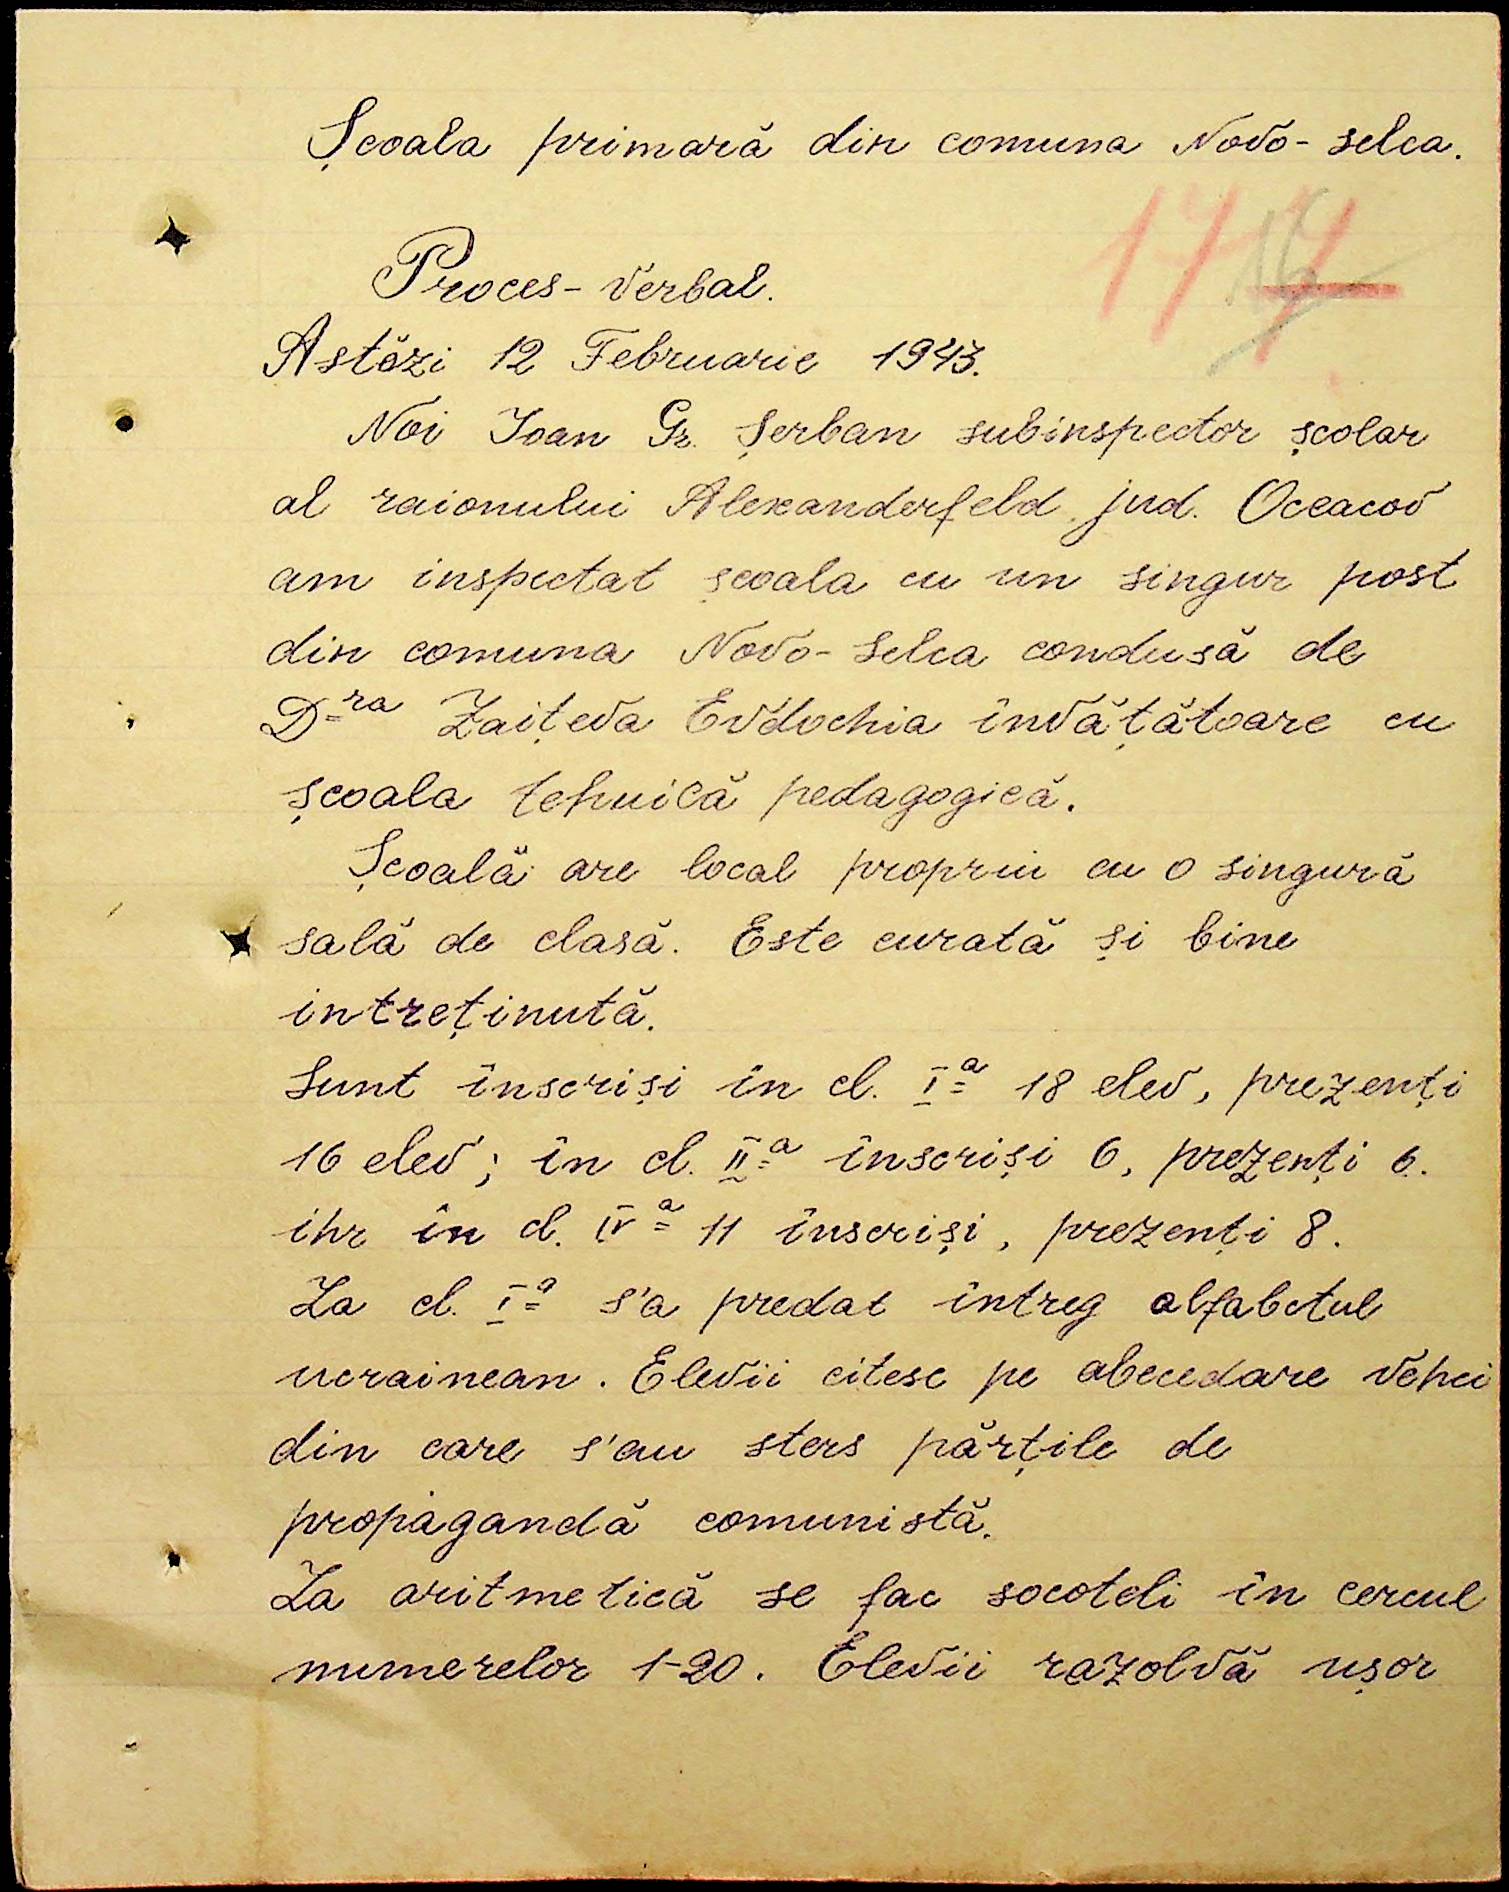 Școala primară din comuna Novo-selca.
Proces-verbal.
Astăzi 12 Februarie 1943.
Noi Ioan Gr. Șerban subinspector școlar
al raionului Alexanderfeld jud. Oceacov
am inspectat școala cu un singur post
din comuna Novo-Selca condusă de
D-ra Zaițeva Evdochia învățătoare cu
școala tehnică pedagogică.
Școală are local propriu cu o singură
sală de clasă. Este curată și bine
intreținută.
Sunt înscriși în cl. I-a 18 elev, prezenți
16 elev; în cl. II-a înscriși 6, prezenți 6.
ihr în cl. IV-a 11 înscriși, prezenți 8.
La cl. I-a s'a predat întreg alfabetul
ucrainean. Elevii citesc pe abecedare vehci
din care s'au sters părțile de
propagandă comunistă.
La aritmetică se fac socoteli în cercul
numerelor 1-20. Elevii razolvă ușor